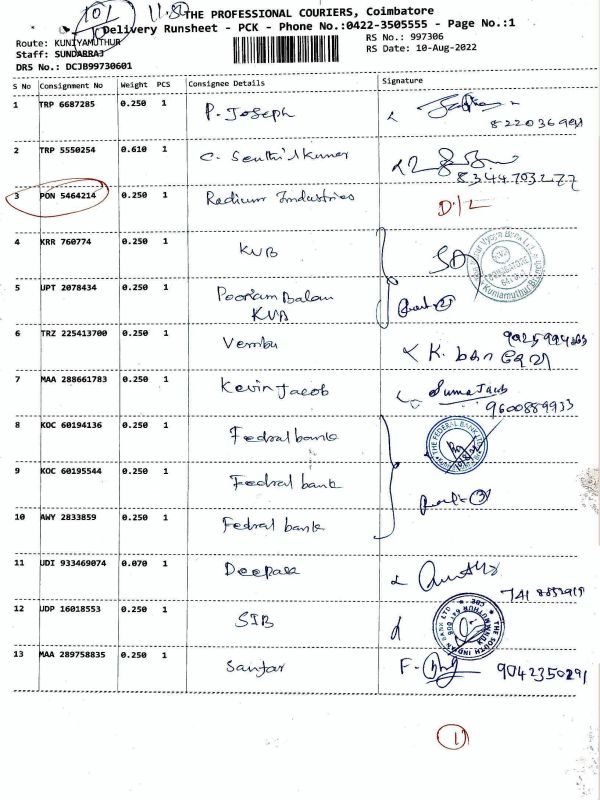 101
11.50
THE PROFESSIONAL COURIERS, Coimbatore
Delivery Runsheet - PCK - Phone No.:0422-3505555 - Page No.:1
Route: KUNIYAMUTHUR
RS No.: 997306
Staff: SUNDARRAJ
RS Date: 10-Aug-2022
DRS No.: DCJB99730601
S No Consignment No Weight PCS Consignee Details Signature
1 TRP 6687285 0.250 1 P. Joseph
2 TRP 5550254 0.610 1 C. Senthil Kumar
8344703277
3 PON 5464214 0.250 1 Radium Industries D/L
4 KRR 760774 0.250 1 KVB
5 UPT 2078434 0.250 1 Poornam Balan
KVB
6 TRZ 225413700 0.250 1 Vembu
7 MAA 288661783 0.250 1 Kevin Jacob Suma Jacob
9600889933
8 KOC 60194136 0.250 1 Fedral bank THE FEDERAL BANK LTD
9 KOC 60195544 0.250 1 Fedral bank
10 AWY 2833859 0.250 1 Fedral bank
11 UDI 933469074 0.070 1 Deepak
12 UDP 16018553 0.250 1 SIB THE SOUTH INDIAN BANK LTD
13 MAA 289758835 0.250 1 Sankar 9042350291
1